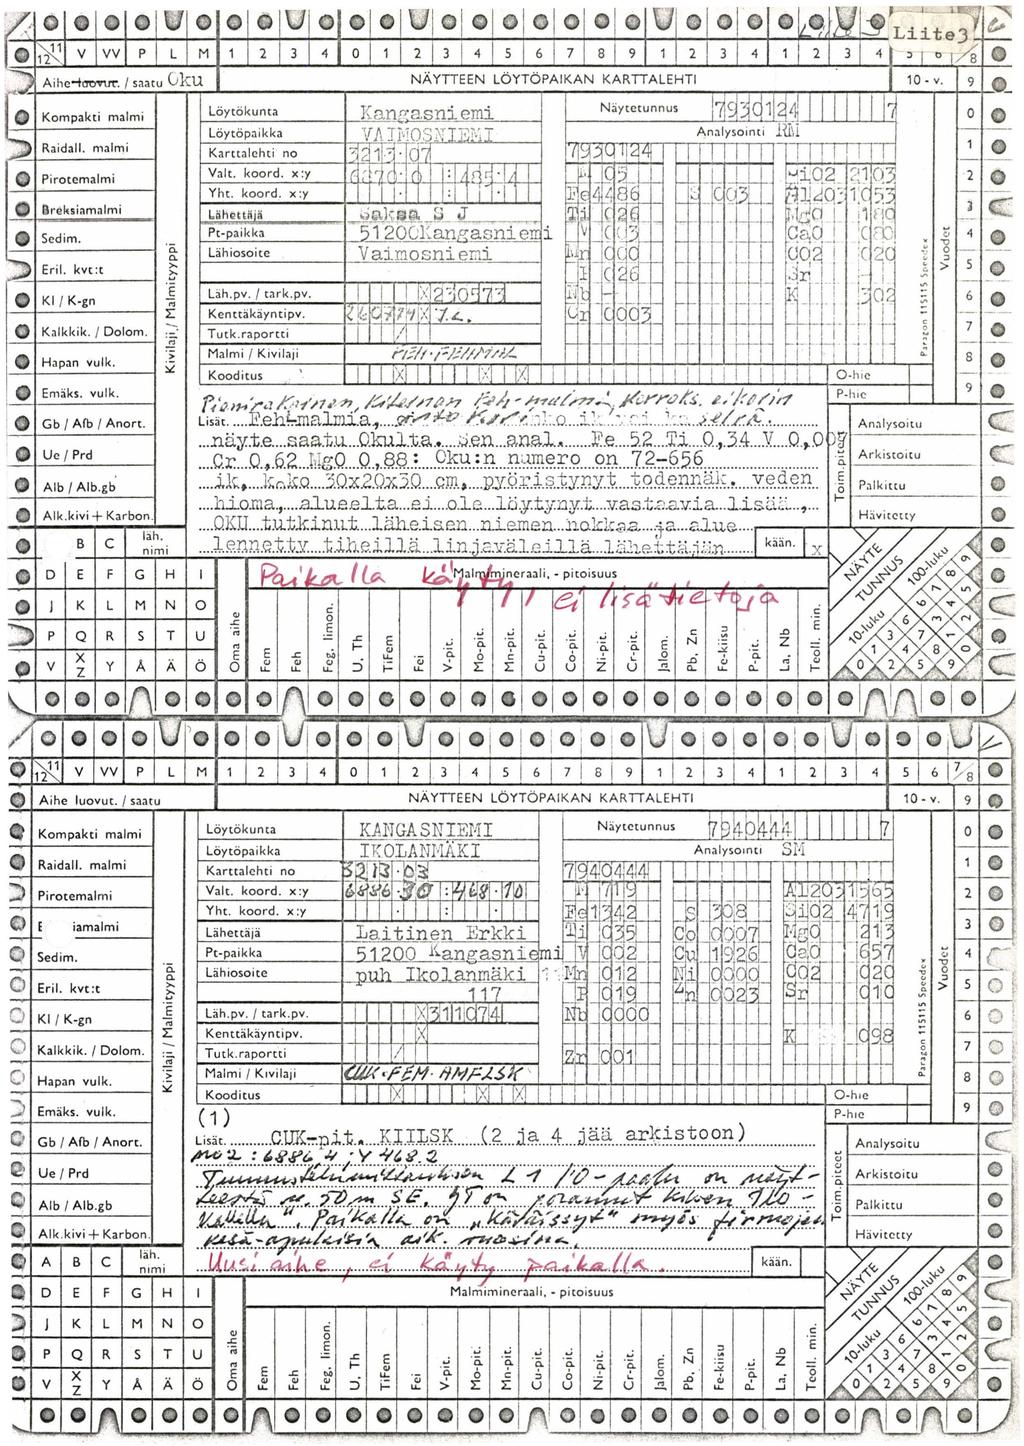 Liite 3
12 11 V VV P L M 1 2 3 4 0 1 2 3 4 5 6 7 8 9 1 2 3 4 1 2 3 4 5 6 8
Aihe luovut. / saatu Oku NÄYTTEEN LÖYTÖPAIKAN KARTTALEHTI 10 - v. 9
Kompakti malmi
Raidall. malmi
Pirotemalmi
Breksiamalmi
Sedim.
Eril. kvt:t
Kl / K-gn
Kalkkik. / Dolom.
Hapan vulk.
Emäks. vulk.
Gb / Afb / Anort.
Ue / Prd
Alb / Alb.gb
Alk.kivi + Karbon.
Kivilaji / Malmityyppi
Löytökunta Kangasniemi Näytetunnus 7930124 7
Löytöpaikka VAIMOSNIEMI Analysointi RM
Karttalehti no 3213 07 7930124
Valt. koord. x:y : 485 4 M 05 SiO2 2103
Yht. koord. x:y : Fe 4486 S 003 Al2O3 1053
Lähettäjä Saksa S J Ti 026 MgO 180
Pt-paikka 51200 Kangasniemi V 003 CaO 080
Lähiosoite Vaimosniemi Mn 000 CO2 020
P 026 Sr -
Läh.pv. / tark.pv. X 230573 Nb - K 302
Kenttäkäyntipv. 260774 X J.L. Cr 0003
Tutk.raportti /
Malmi / Kivilaji
Kooditus X X X O-hie
P-hie
Vuodet
Paragon 115115 Speedex
0 1 2 3 4 5 6 7 8 9
Lisät. Feh-malmia,
näyte saatu Okulta. Sen anal. Fe 52 Ti 0,34 V 0,007
Cr 0,62 MgO 0,88: Oku:n numero on 72-656
ik, koko 30x20x30 cm, pyöristynyt todennäk. veden
hioma, alueelta ei ole löytynyt vastaavia lisää,
OKU tutkinut läheisen niemen nokkaa ja alue
lennetty tiheillä linjaväleillä lähettäjän kään. X
Toim.piteet
Analysoitu
Arkistoitu
Palkittu
Hävitetty
B C läh. nimi
D E F G H I Malmimineraali, - pitoisuus
Paikalla käyty, ei lisätietoja
J K L M N O
P Q R S T U
V X Z Y Å Ä Ö
Oma aihe Fem Feh Feg. limon. U, Th TiFem Fei V-pit. Mo-pit. Mn-pit. Cu-pit. Co-pit. Ni-pit. Cr-pit. Jalom. Pb, Zn Fe-kiisu P-pit. La, Nb Teoll. min.
NÄYTE TUNNUS 100-luku 10-luku
12 11 V VV P L M 1 2 3 4 0 1 2 3 4 5 6 7 8 9 1 2 3 4 1 2 3 4 5 6 7/8
Aihe luovut. / saatu NÄYTTEEN LÖYTÖPAIKAN KARTTALEHTI 10 - v. 9
Kompakti malmi
Raidall. malmi
Pirotemalmi
iamalmi
Sedim.
Eril. kvt:t
Kl / K-gn
Kalkkik. / Dolom.
Hapan vulk.
Emäks. vulk.
Gb / Afb / Anort.
Ue / Prd
Alb / Alb.gb
Alk.kivi + Karbon.
Kivilaji / Malmityyppi
Löytökunta KANGASNIEMI Näytetunnus 7940444 7
Löytöpaikka IKOLANMÄKI Analysointi SM
Karttalehti no 3213 03 7940444
Valt. koord. x:y 6886 30 : 468 10 M 719 Al2O3 1565
Yht. koord. x:y : Fe 1342 S 308 SiO2 4719
Lähettäjä Laitinen Erkki Ti 035 Co 0007 MgO 213
Pt-paikka 51200 Kangasniemi V 002 Cu 1926 CaO 657
Lähiosoite puh Ikolanmäki Mn 012 Ni 0000 CO2 020
117 P 019 Zn 0023 Sr 010
Läh.pv. / tark.pv. X 311074 Nb 0000
Kenttäkäyntipv. X K 098
Tutk.raportti / Zr 001
Malmi / Kivilaji CUK-FEM-AMFLSK
Kooditus X X X O-hie
P-hie
Vuodet
Paragon 115115 Speedex
0 1 2 3 4 5 6 7 8 9
(1)
Lisät. CUK-pit. KIILSK (2 ja 4 jää arkistoon)
no 2 : 6886 4 ; Y 468 2
50 m SE.
Paikalla on myös
Uusi aihe, ei käyty paikalla. kään.
Toim.piteet
Analysoitu
Arkistoitu
Palkittu
Hävitetty
A B C läh. nimi
D E F G H I Malmimineraali, - pitoisuus
J K L M N O
P Q R S T U
V X Z Y Å Ä Ö
Oma aihe Fem Feh Feg. limon. U, Th TiFem Fei V-pit. Mo-pit. Mn-pit. Cu-pit. Co-pit. Ni-pit. Cr-pit. Jalom. Pb, Zn Fe-kiisu P-pit. La, Nb Teoll. min.
NÄYTE TUNNUS 100-luku 10-luku